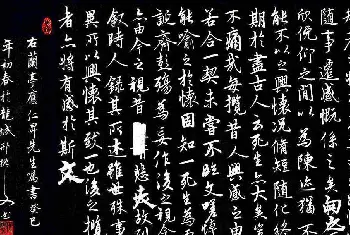 隨事遷感慨係之矣向之
欣俛仰之間以為陳迹猶不
能不以之興懷況脩短隨化終
期於盡古人云死生亦大矣豈
不痛哉每攬昔人興感之由
若合一契未嘗不臨文嗟悼
能喻之於懷固知一死生為虛
誕齊彭殤為妄作後之視今
亦由今之視昔悲夫故列
敘時人錄其所述雖世殊事
異所以興懷其致一也後之攬
者亦將有感於斯文
右蘭亭應仁昇先生寫書癸巳
年初春於龍城